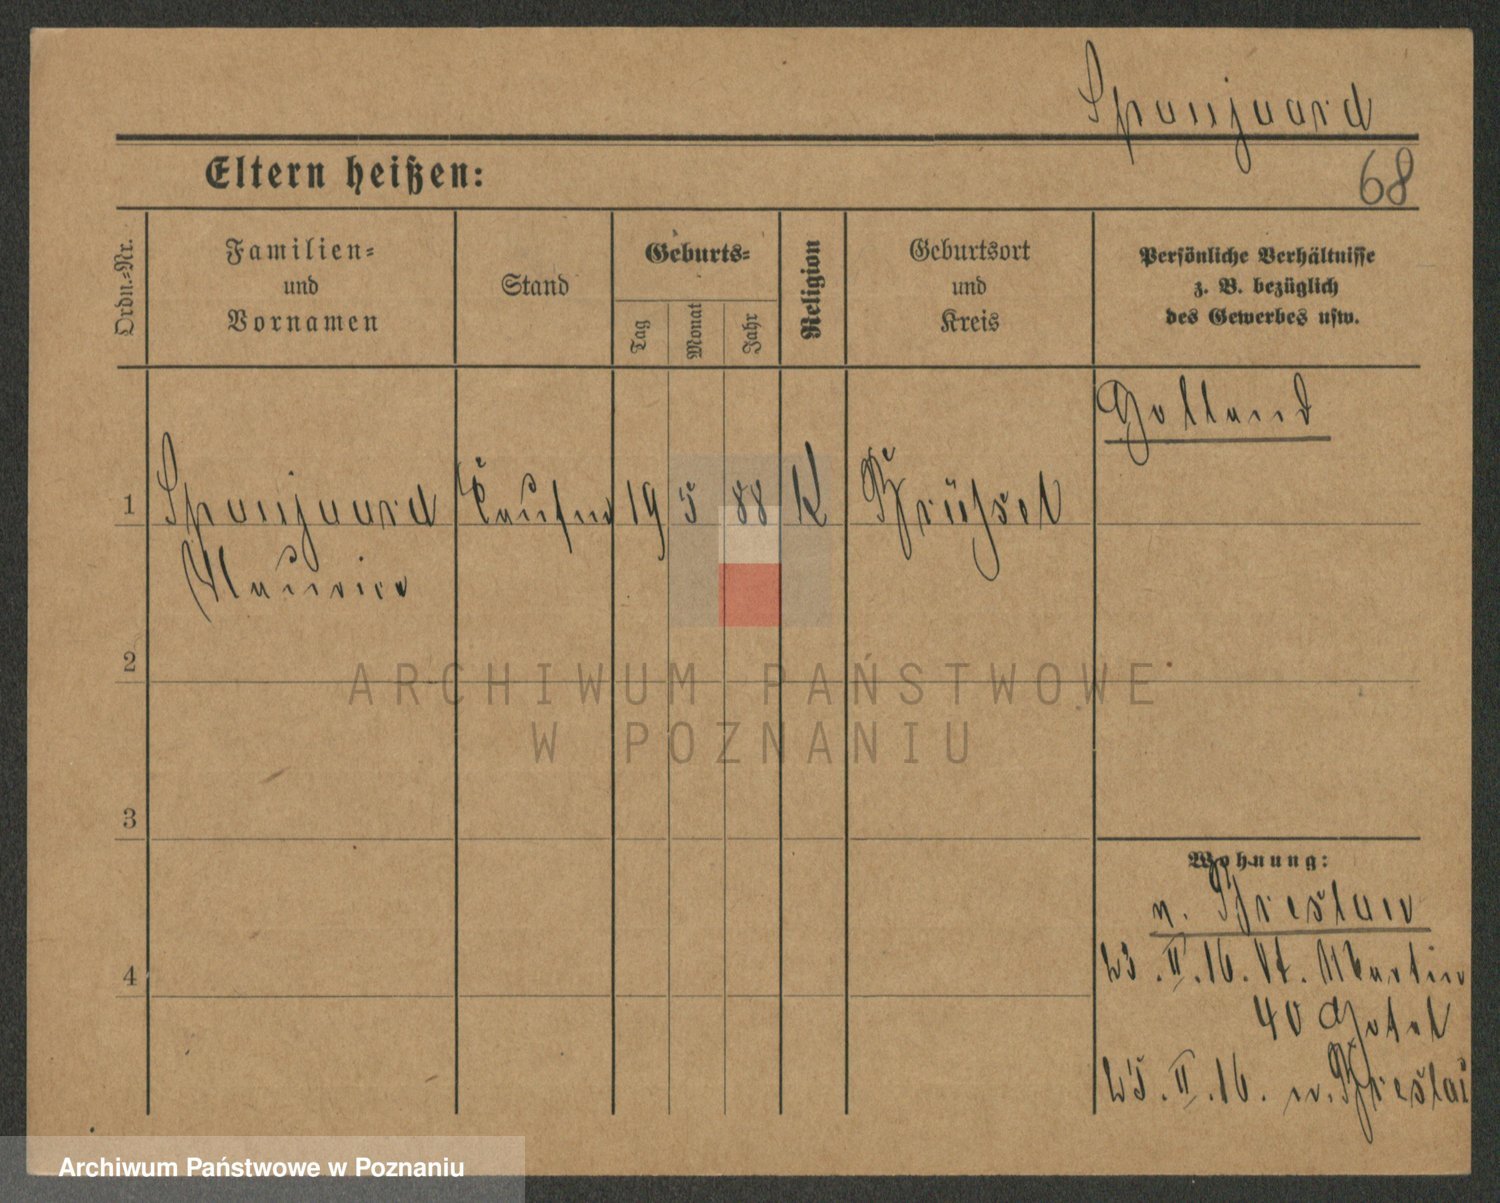 Spanjaard
68
Eltern heißen:
Ordn.-Nr.
Familien-
und
Vornamen
Stand
Geburts-
Tag
Monat
Jahr
Religion
Geburtsort
und
Kreis
Persönliche Verhältnisse
z. B. bezüglich
des Gewerbes usw.
Holland
1 Spanjaard Kaufm 19 5 88 K Brüssel
Maurice
2
ARCHIWUM PAŃSTWOWE
W POZNANIU
3
Wohnung:
v. Breslau
23. II. 16. St. Martin
4
40 Hotel
25. II. 16. n. Breslau
Archiwum Państwowe w Poznaniu